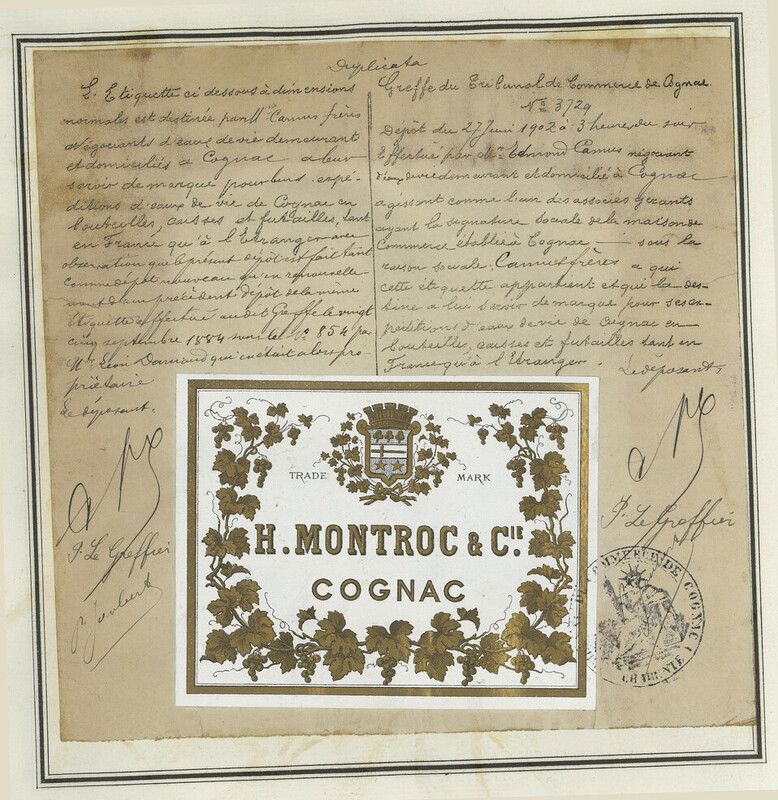 Duplicata
L'Etiquette ci dessous à dimensions
normales est destinée par MM Camus frères
négociants d'eaux de vie demeurants
et domiciliés à Cognac à leur
servir de marque pour leurs expé-
ditions d'eaux de vie de Cognac en
bouteilles, caisses et futailles, tant
en France qu'à l'Etranger avec
observation que le présent dépôt est fait tant
comme dépôt nouveau qu'en renouvelle-
ment d'un précédent dépôt de la même
Etiquette effectué au dit Greffe le vingt
cinq septembre 1884 sous le No 854 par
Mr. Léon Damaud qui en était alors pro-
priétaire
Le déposant.
P. Le Greffier
P. Joubert
Greffe du Tribunal de Commerce de Cognac.
No 3729
Dépôt du 27 Juin 1902 à 3 heures du soir
Effectué par Mr. Edmond Camus négociant
d'eaux de vie demeurant et domicilié à Cognac
agissant comme l'un des associés gérants
ayant la signature sociale de la maison de
Commerce établie à Cognac — sous la
raison sociale: Camus frères à qui
cette étiquette appartient et qui la des-
tine à lui servir de marque pour ses ex-
péditions d'eaux de vie de Cognac en
bouteilles, caisses et futailles tant en
France qu'à l'Etranger.
Le déposant,
P. Le Greffier
TRADE MARK
H. MONTROC & CIE.
COGNAC
COMMERCE DE COGNAC
CHARENTE